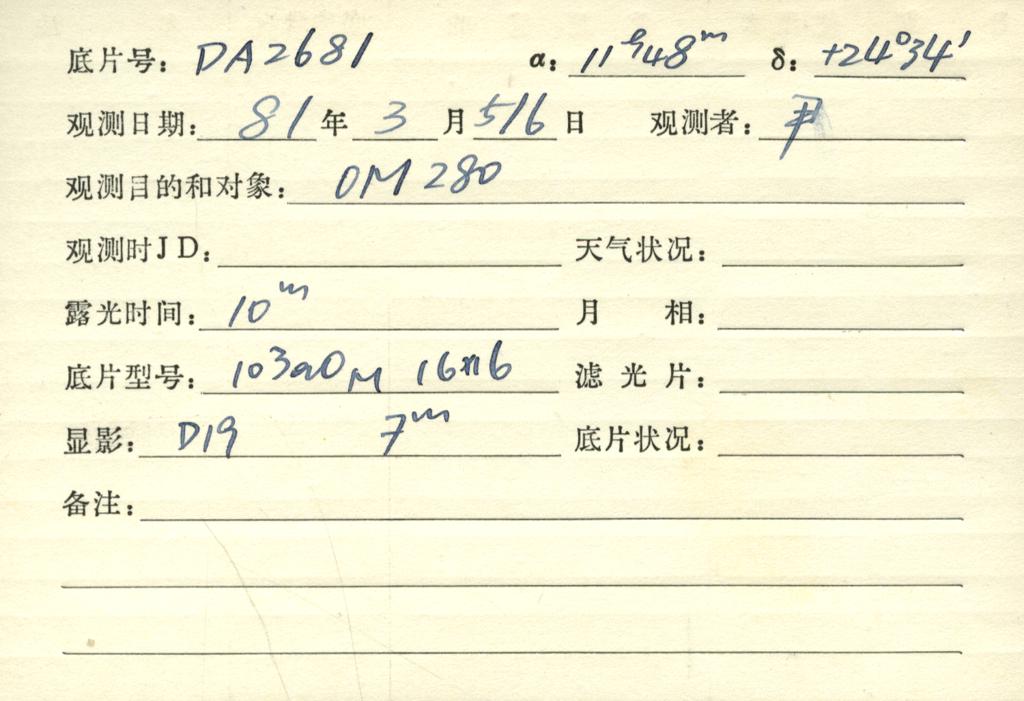 底片号: DA2681 α: 11ʰ48ᵐ δ: +24°34′
观测日期: 81 年 3 月 5/6 日 观测者: 尹
观测目的和对象: OM 280
观测时JD: 天气状况:
露光时间: 10ᵐ 月 相:
底片型号: 103aO 16 滤光片:
显影: D19 7ᵐ 底片状况:
备注: